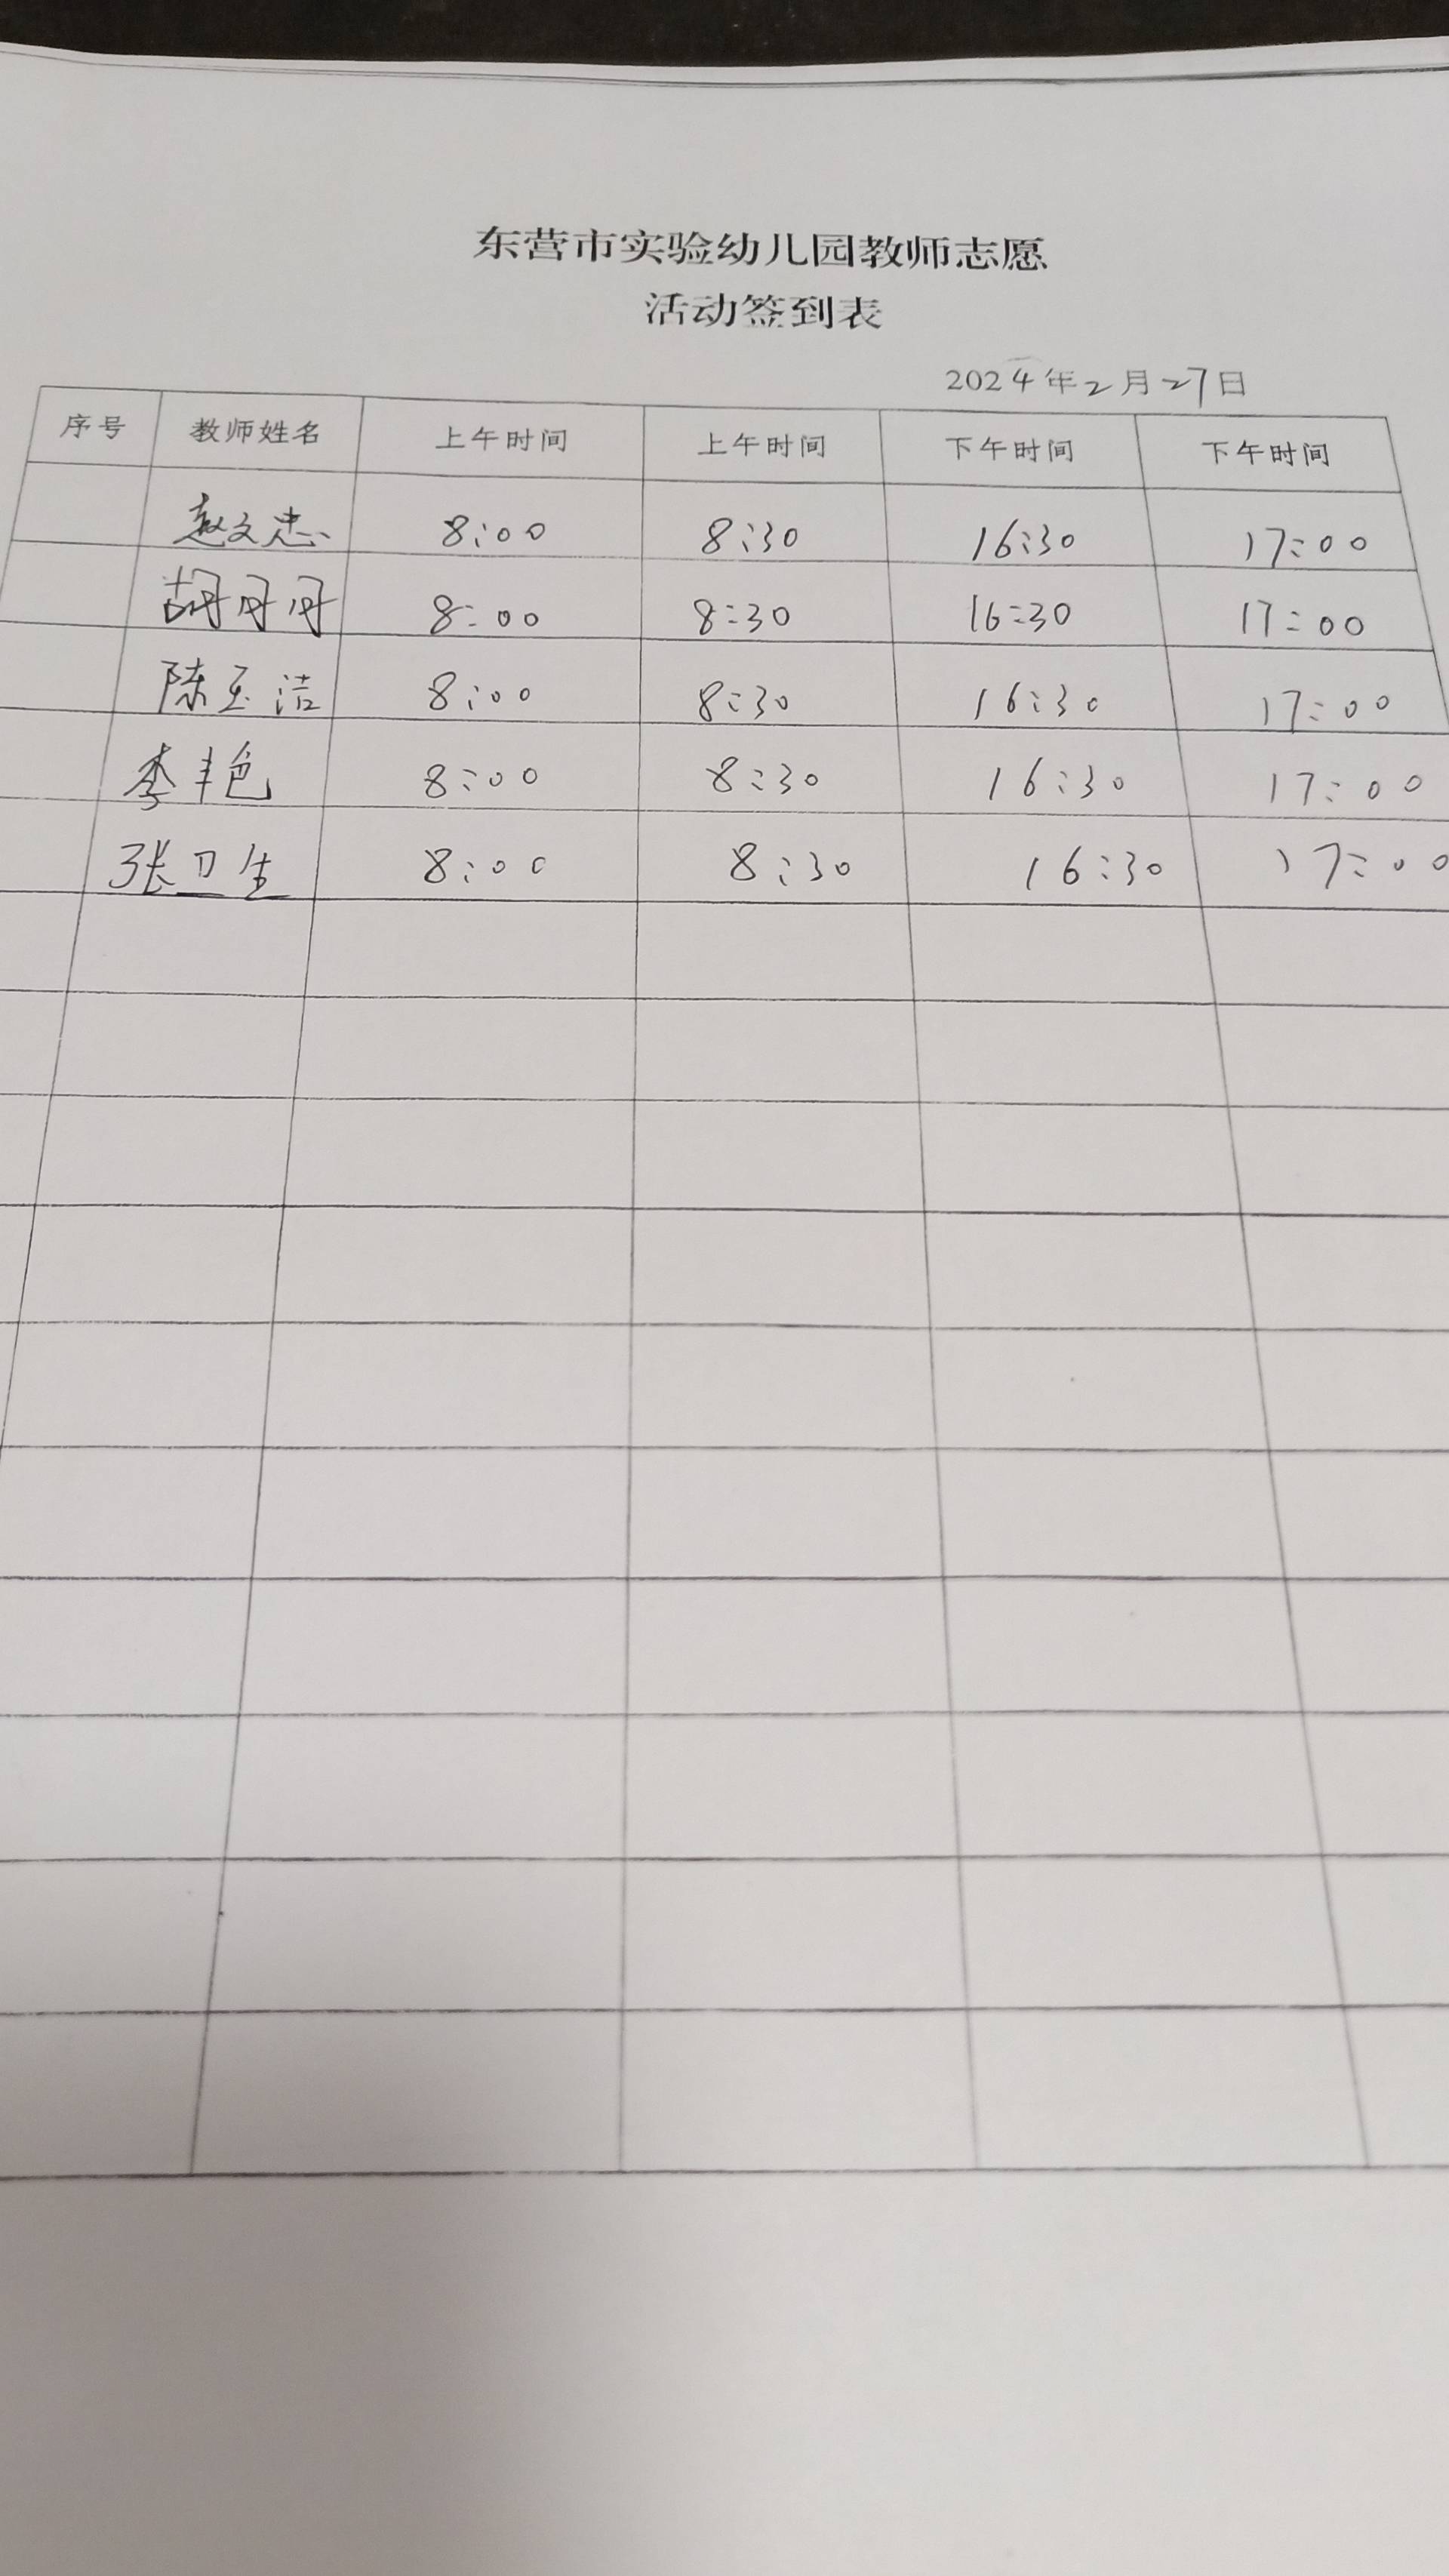 东营市实验幼儿园教师志愿
活动签到表
2024年2月27日
序号 教师姓名 上午时间 上午时间 下午时间 下午时间
赵文忠 8:00 8:30 16:30 17:00
胡丹丹 8:00 8:30 16:30 17:00
陈玉洁 8:00 8:30 16:30 17:00
李艳 8:00 8:30 16:30 17:00
张卫生 8:00 8:30 16:30 17:00